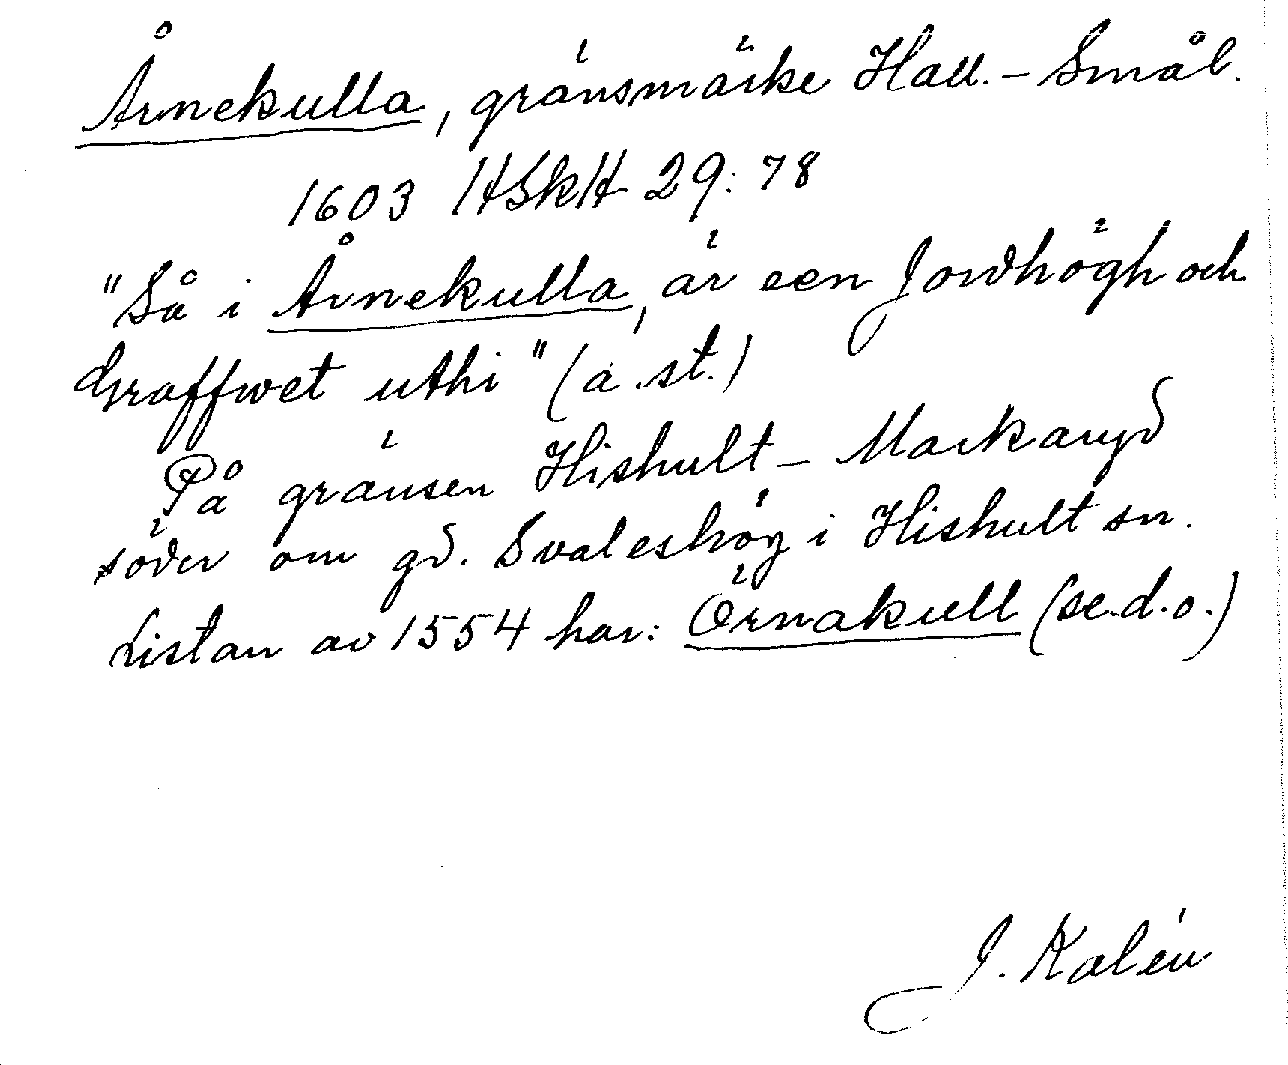 Årnekulla, gränsmärke Hall. - Smål.
1603 HSkH 29:78
"Så i Årnekulla, är een Jordhögh och
Graffwet uthi" (a. st.)
På gränsen Hishult - Markaryd
söder om gd. Svaleshög i Hishult sn.
Listan av 1554 har: Örnakull (se d.o.)
J. Kalén